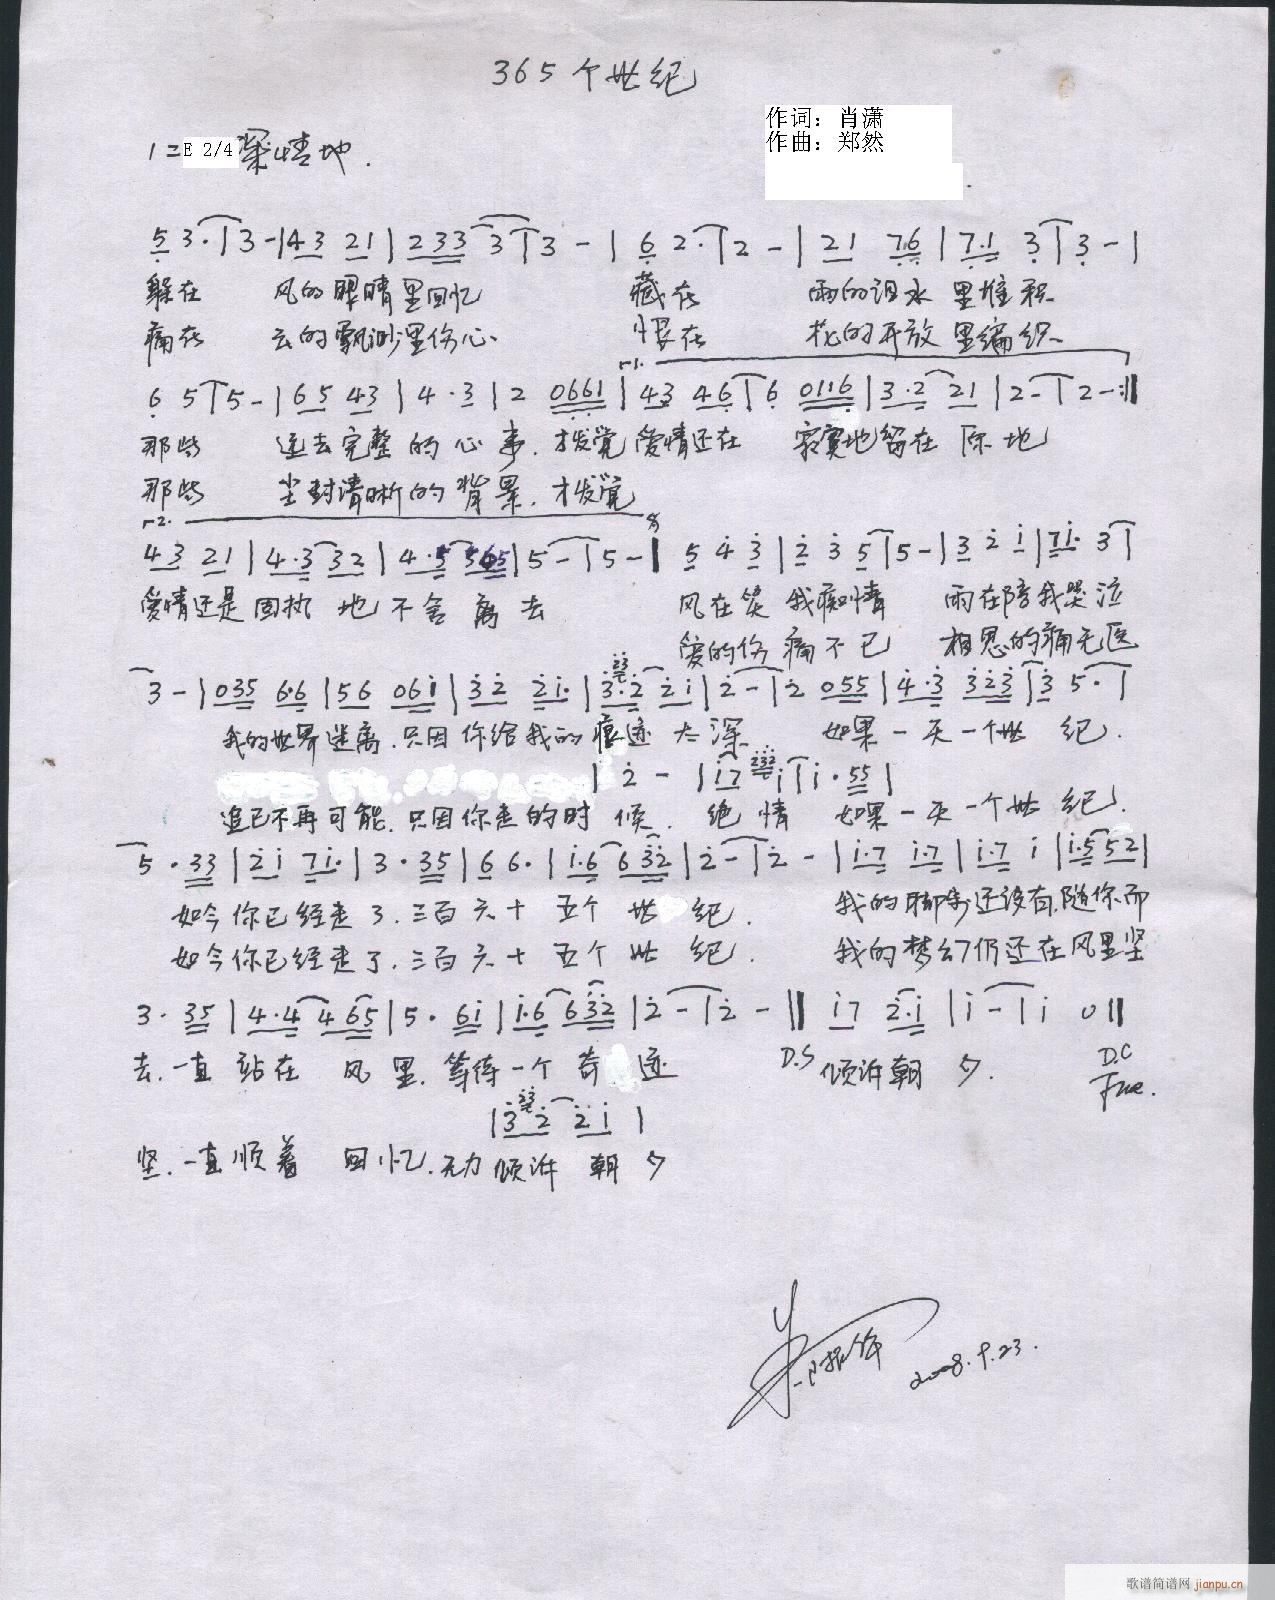 365个世纪
作词：肖潇
作曲：郑然
1=E 2/4 深情地.
5 3·|3-|43 21|233 3|3-|6 2·|2-|21 76|7·1 3|3-|
躲在 风的眼睛里回忆 藏在 雨的泪水里堆积
痛在 云的飘渺里伤心 恨在 花的开放里编织
1.
6 5|5-|65 43|4·3|2 0661|43 46|6 0116|3·2 21|2-|2-:‖
那些 逝去完整的心事. 才发觉爱情还在 寂寞地留在原地
那些 尘封清晰的背景. 才发觉
2.
43 21|4·3 32|4·5 565|5-|5-‖ 5 4 3|2 3 5|5-|3 2 1|71· 3|
爱情还是固执地不舍离去 风在笑我痴情 雨在陪我哭泣
爱的伤痛不已 相思的痛无医
3-|035 6·6|56 061|32 21·|3·2 21|2-|2 055|4·3 323|3 5·|
我的世界迷离.只因你给我的痕迹太深 如果一天一个世纪.
|2-|17 232 1|1·55|
追已不再可能.只因你走的时候.绝情 如果一天一个世纪.
5·33|21 71·|3·35|6 6·|1·6 632|2-|2-|1·7 1·7|1·7 1|1·5 52|
如今你已经走了.三百六十五个世纪. 我的脚步还没有随你而
如今你已经走了.三百六十五个世纪. 我的梦幻仍还在风里坚
3·35|4·4 465|5·61|1·6 632|2-|2-‖17 2·1|1-|1 0‖
去.一直站在风里.等待一个奇迹 D.S 倾诉朝夕. D.C
Fine.
|3 23 2 21|
坚.一直顺着回忆.无力倾诉朝夕
2008.9.23.
歌谱简谱网 jianpu.cn